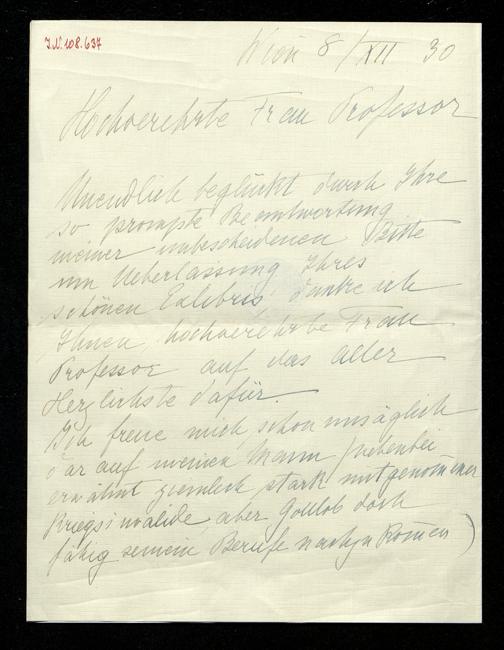 I.N. 108.637
Wien 8/XII 30
Hochverehrte Frau Professor
Unendlich beglückt durch Ihre
so prompte Beantwortung
meiner unbescheidenen Bitte
um Ueberlassung Ihres
schönen Exlibris, danke ich
Ihnen, hochverehrte Frau
Professor auf das aller
Herzlichste dafür.
Ich freue mich schon unsäglich
darauf meinen Mann (nebenbei
erwähnt ziemlich stark mitgenom̄ener
Kriegsinvalide, aber Gottlob doch
fähig seinem Berufe nachzukom̄en)